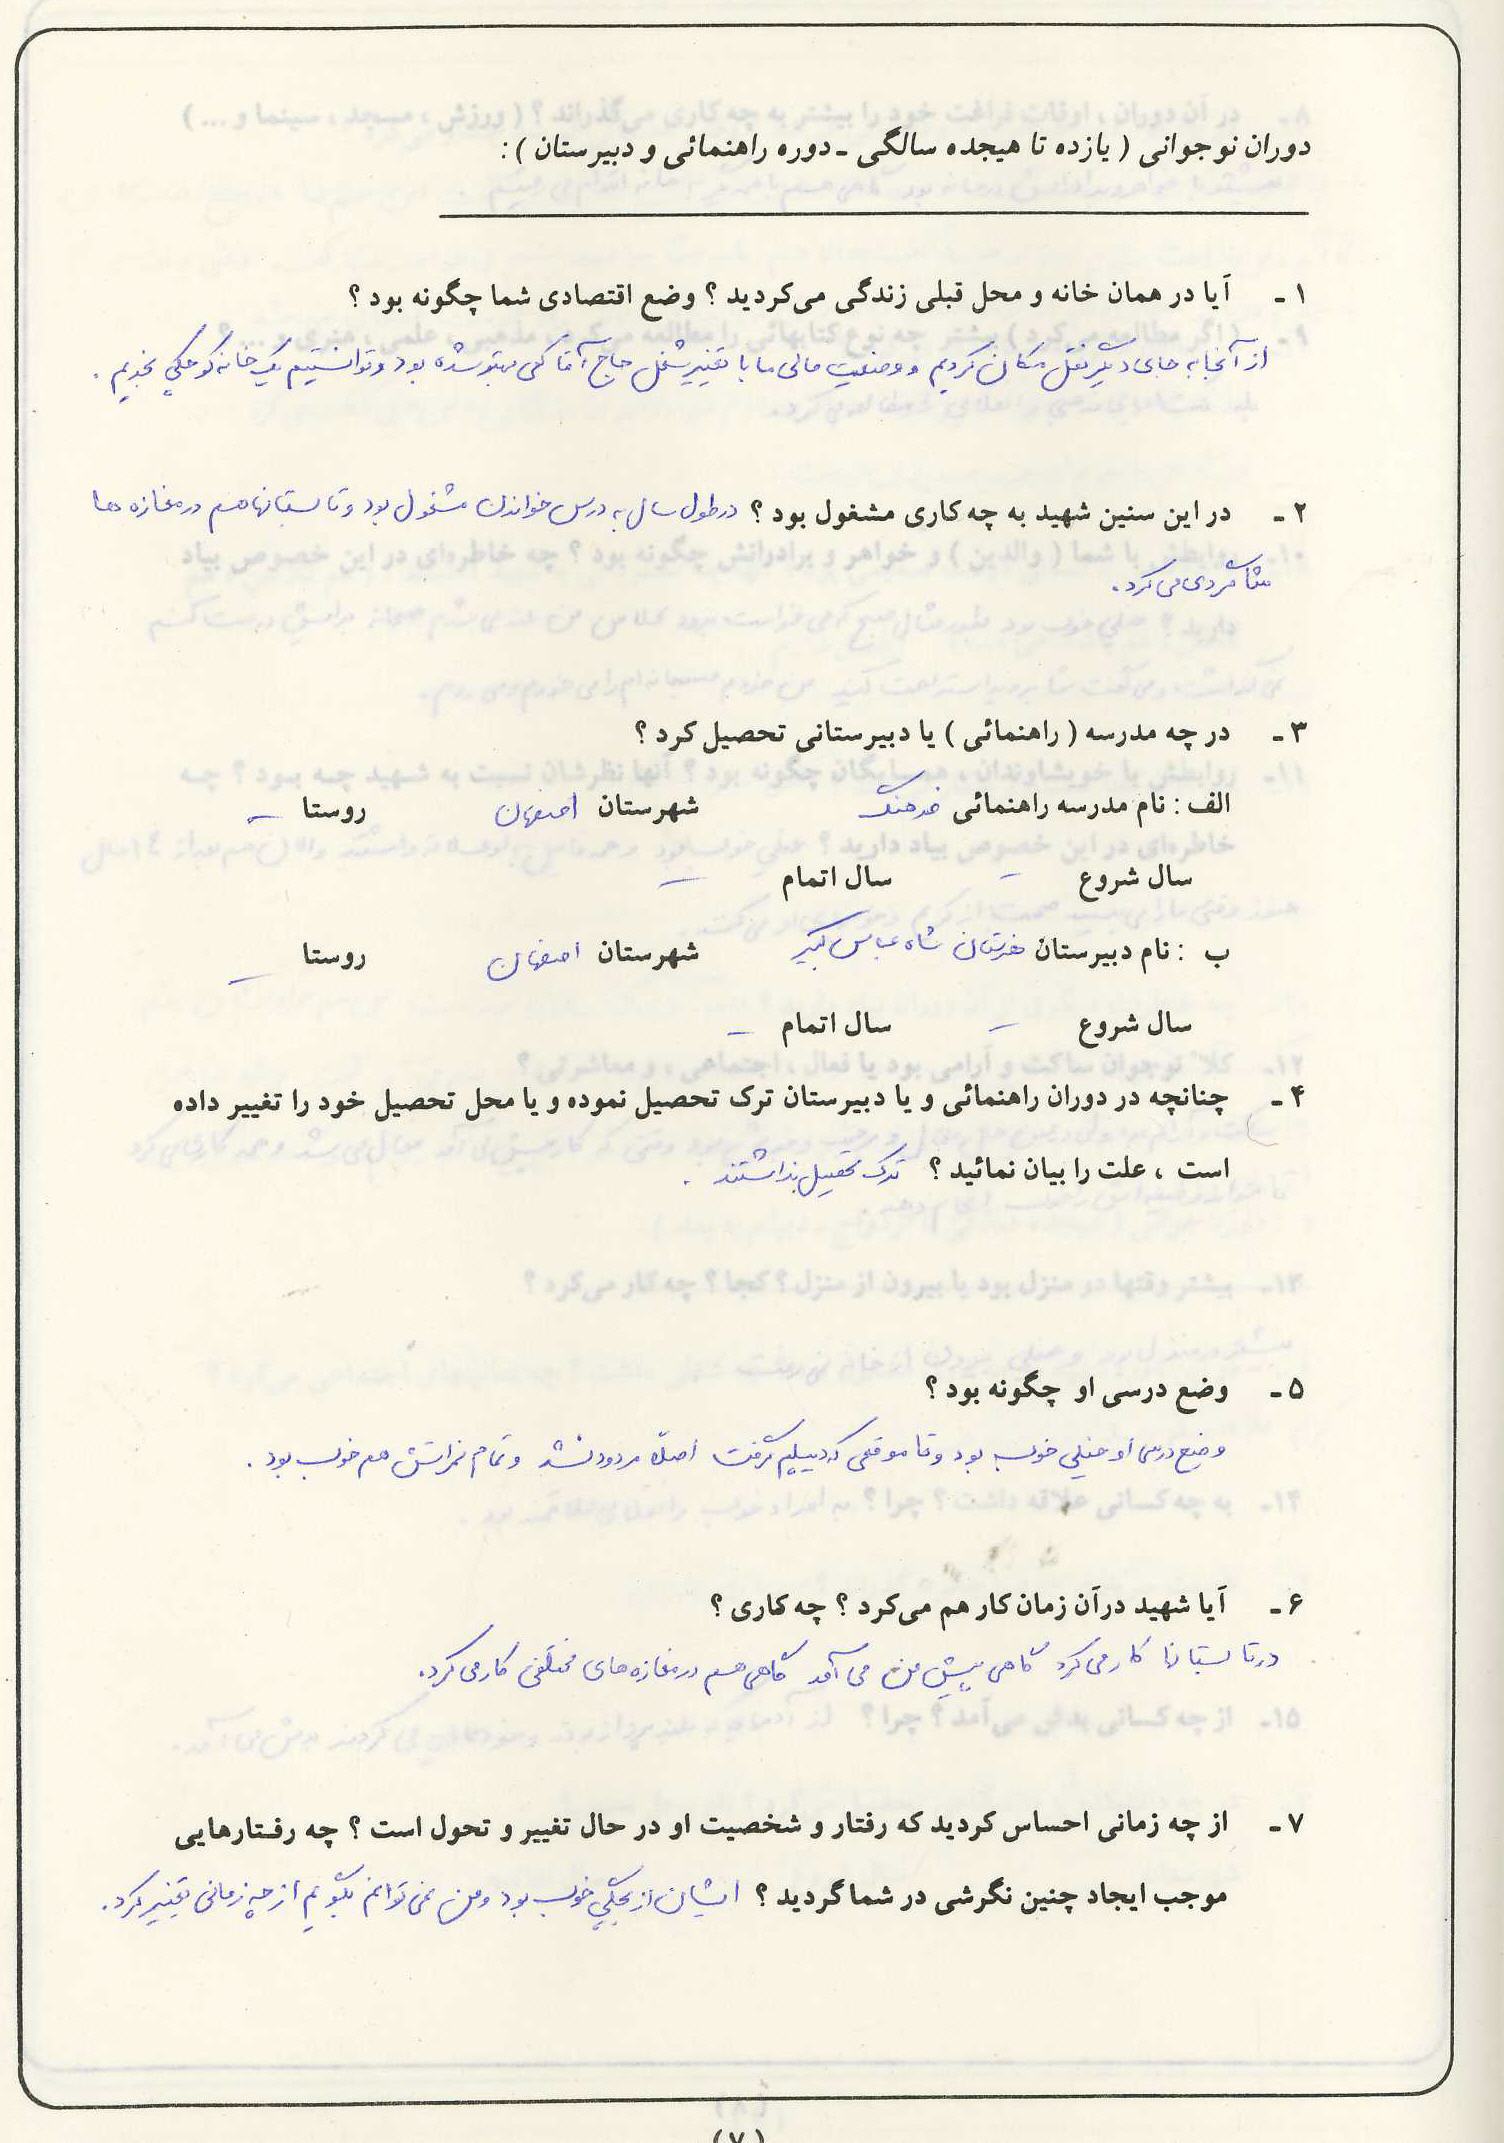 دوران نوجوانی ( یازده تا هیجده سالگی ـ دوره راهنمائی و دبیرستان ) :
۱ ـ آیا در همان خانه و محل قبلی زندگی می‌کردید ؟ وضع اقتصادی شما چگونه بود ؟
از آنجا به جای دیگر نقل مکان کردیم و وضعیت مالی ما با تغییر شغل حاج آقا کمی بهتر شده بود و توانستیم یک خانه کوچکی بخریم .
۲ ـ در این سنین شهید به چه کاری مشغول بود ؟ در طول سال به درس خواندن مشغول بود و تابستانها هم در مغازه ها
شاگردی می کرد .
۳ ـ در چه مدرسه ( راهنمائی ) یا دبیرستانی تحصیل کرد ؟
الف : نام مدرسه راهنمائی فرهنگ شهرستان اصفهان روستا ـ
سال شروع ـ سال اتمام ـ
ب : نام دبیرستان هنرستان شاه عباس کبیر شهرستان اصفهان روستا ـ
سال شروع ـ سال اتمام ـ
۴ ـ چنانچه در دوران راهنمائی و یا دبیرستان ترک تحصیل نموده و یا محل تحصیل خود را تغییر داده
است ، علت را بیان نمائید ؟ ترک تحصیل نداشتند .
۵ ـ وضع درسی او چگونه بود ؟
وضع درسی او خیلی خوب بود و تا موقعی که دیپلم گرفت اصلاً مردود نشد و تمام نمراتش هم خوب بود .
۶ ـ آیا شهید درآن زمان کار هم می‌کرد ؟ چه کاری ؟
در تابستانها کار می کرد گاهی پیش من می آمد گاهی هم در مغازه های مختلفی کار می کرد .
۷ ـ از چه زمانی احساس کردید که رفتار و شخصیت او در حال تغییر و تحول است ؟ چه رفتارهایی
موجب ایجاد چنین نگرشی در شما گردید ؟ ایشان از بچگی خوب بود و من نمی توانم بگویم از چه زمانی تغییر کرد .
(۷)